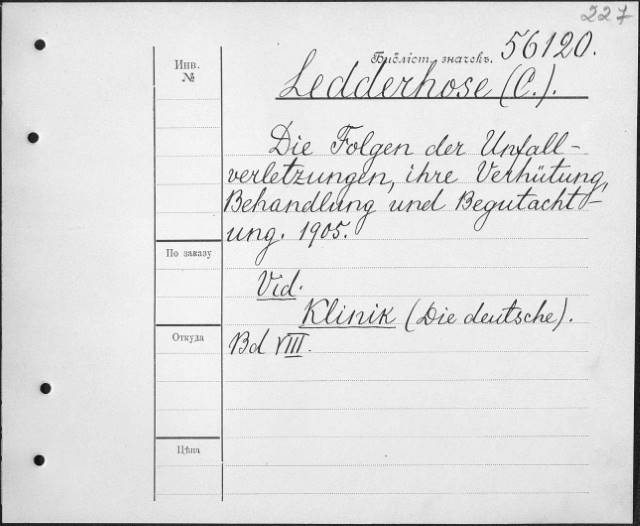 227
Инв.
№
Библіот. значекъ. 56120.
Ledderhose (C.).
Die Folgen der Unfall-
verletzungen, ihre Verhütung,
Behandlung und Begutacht-
ung. 1905.
По заказу
Vid.
Klinik (Die deutsche).
Откуда
Bd VIII.
Цѣна